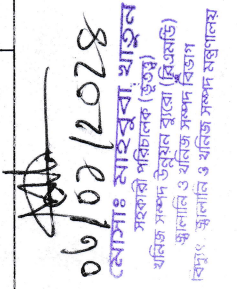 ০৬/০২/২০২৪
মোসাঃ মাহবুবা খাতুন
সহকারী পরিচালক (ভূতত্ত্ব)
খনিজ সম্পদ উন্নয়ন ব্যুরো (বিএমডি)
জ্বালানি ও খনিজ সম্পদ বিভাগ
বিদ্যুৎ, জ্বালানি ও খনিজ সম্পদ মন্ত্রণালয়